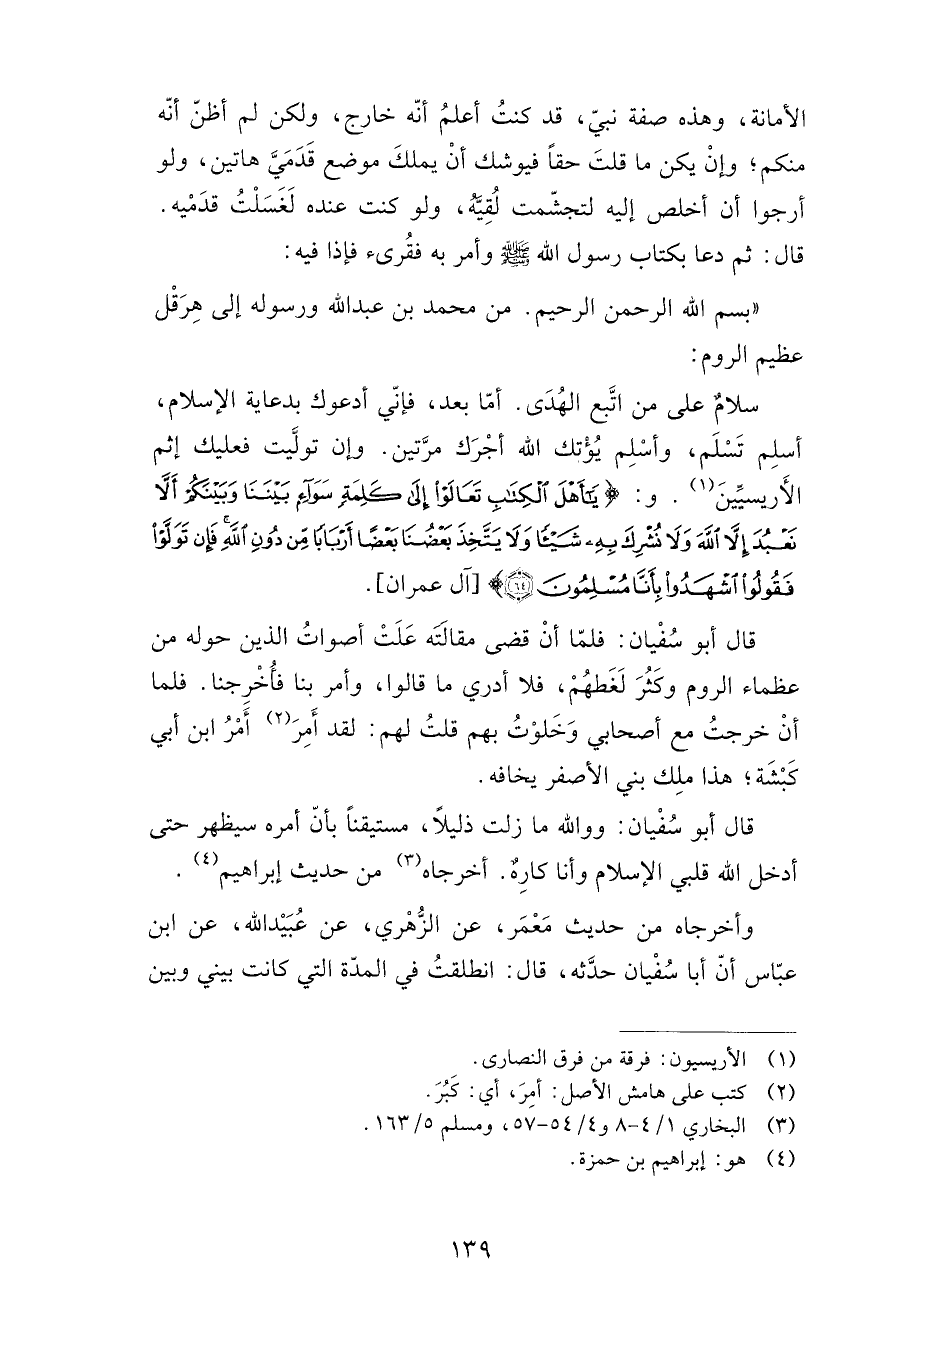 الأمانة، وهذه صفة نبيّ، قد كنتُ أعلمُ أنّه خارج، ولكن لم أظنّ أنّه
منكم؛ وإنْ يكن ما قلتَ حقاً فيوشك أنْ يملكَ موضع قَدَمَيَّ هاتين، ولو
أرجوا أن أخلص إليه لتجشّمت لُقِيَّهُ، ولو كنت عنده لَغَسَلْتُ قدمْيه.
قال: ثم دعا بكتاب رسول الله ﷺ وأمر به فقُرىء فإذا فيه:
«بسم الله الرحمن الرحيم. من محمد بن عبدالله ورسوله إلى هِرَقْل
عظيم الروم:
سلامٌ على من اتَّبع الهُدَى. أمّا بعد، فإنّي أدعوك بدعاية الإسلام،
أسلِم تَسْلَم، وأسْلِم يُؤْتك الله أجْرَك مرَّتين. وإن تولَّيت فعليك إثم
الأَريسيِّينَ(١). و: ﴿ يَٰٓأَهْلَ ٱلْكِتَٰبِ تَعَالَوْا۟ إِلَىٰ كَلِمَةٍ سَوَآءٍ بَيْنَنَا وَبَيْنَكُمْ أَلَّا
نَعْبُدَ إِلَّا ٱللَّهَ وَلَا نُشْرِكَ بِهِۦ شَيْـًٔا وَلَا يَتَّخِذَ بَعْضُنَا بَعْضًا أَرْبَابًا مِّن دُونِ ٱللَّهِ ۚ فَإِن تَوَلَّوْا۟
فَقُولُوا۟ ٱشْهَدُوا۟ بِأَنَّا مُسْلِمُونَ ٦٤﴾ [آل عمران].
قال أبو سُفْيان: فلمّا أنْ قضى مقالَتَه عَلَتْ أصواتُ الذين حوله من
عظماء الروم وكَثُرَ لَغَطهُمْ، فلا أدري ما قالوا، وأمر بنا فأُخْرِجنا. فلما
أنْ خرجتُ مع أصحابي وَخَلوْتُ بهم قلتُ لهم: لقد أَمِرَ(٢) أَمْرُ ابن أبي
كَبْشَة؛ هذا ملِك بني الأصفر يخافه.
قال أبو سُفْيان: ووالله ما زلت ذليلاً، مستيقناً بأنّ أمره سيظهر حتى
أدخل الله قلبي الإسلام وأنا كارِهٌ. أخرجاه(٣) من حديث إبراهيم(٤).
وأخرجاه من حديث مَعْمَر، عن الزُّهْري، عن عُبَيْدالله، عن ابن
عبّاس أنّ أبا سُفْيان حدَّثه، قال: انطلقتُ في المدّة التي كانت بيني وبين
(١) الأريسيون: فرقة من فرق النصارى.
(٢) كتب على هامش الأصل: أمِرَ، أي: كَبُرَ.
(٣) البخاري ١/ ٤-٨ و٤/ ٥٤-٥٧، ومسلم ٥/ ١٦٣.
(٤) هو: إبراهيم بن حمزة.
١٣٩